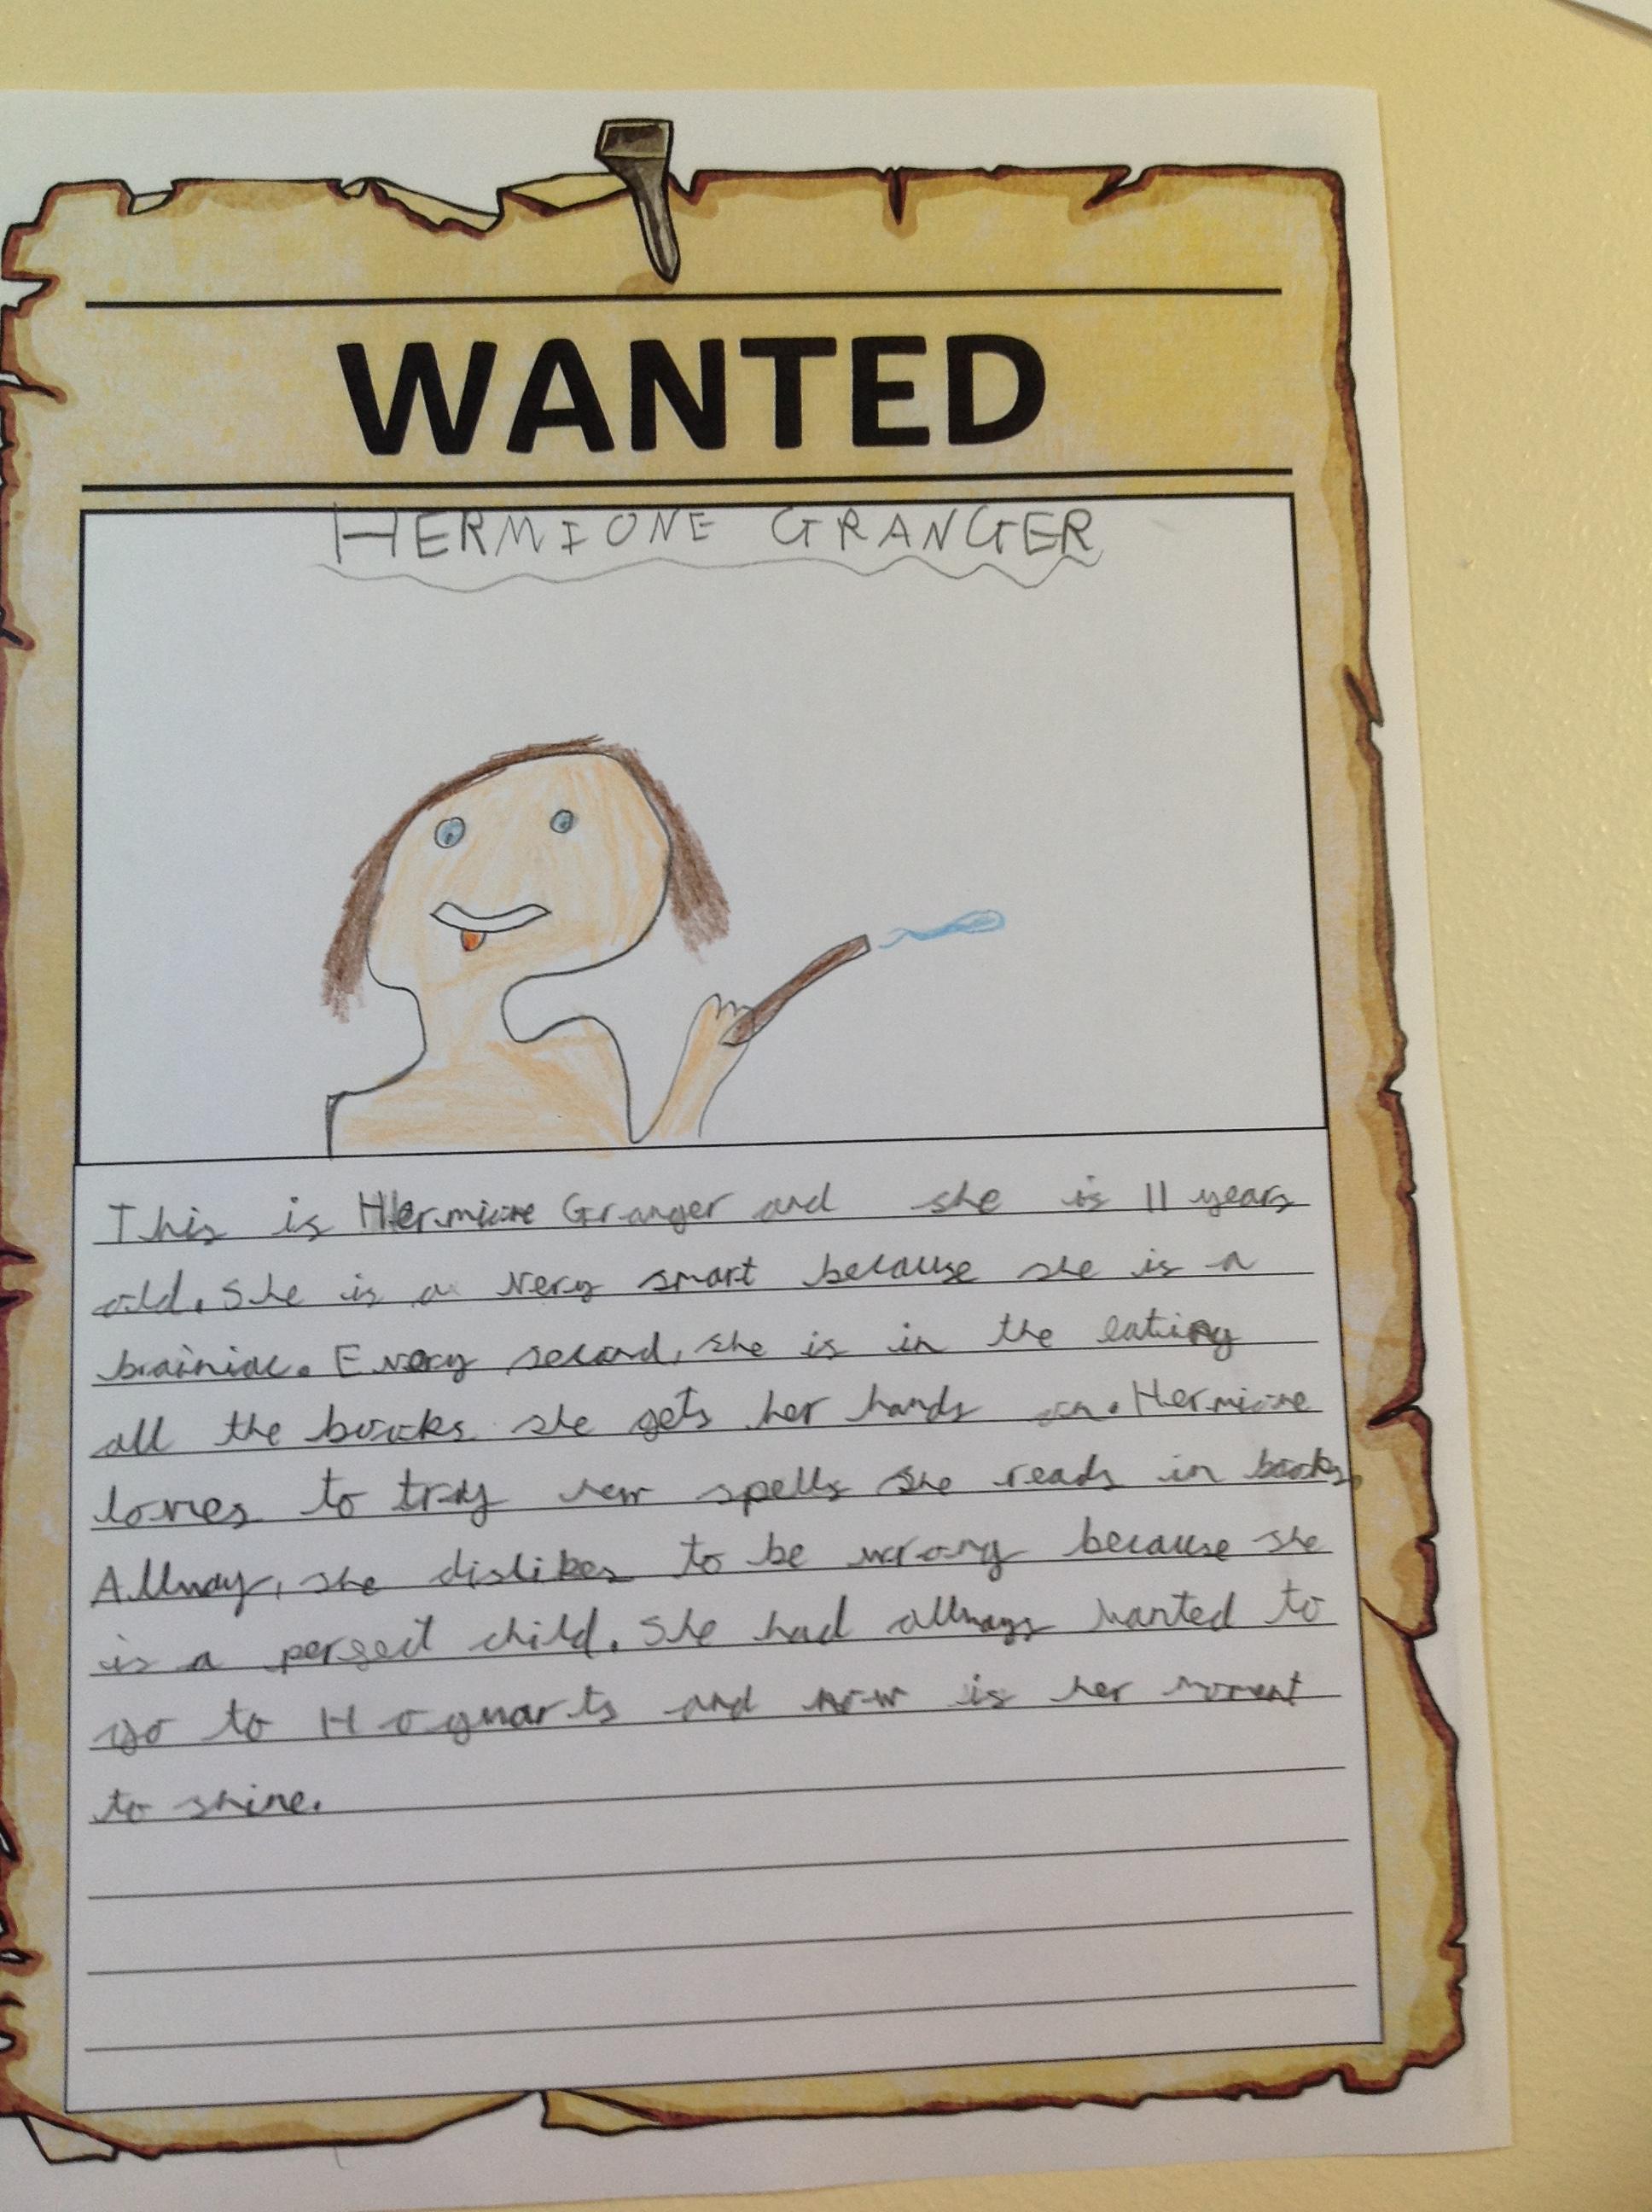 WANTED
HERMIONE GRANGER
This is Hermione Granger and she is 11 years
old. She is a very smart because she is a
brainiac. Every second, she is in the eating
all the books she gets her hands on. Hermione
loves to try new spells She reads in books.
Allway, she dislikes to be wrong because she
is a perfect child. She had allways wanted to
go to Hogwarts and now is her moment
to shine.